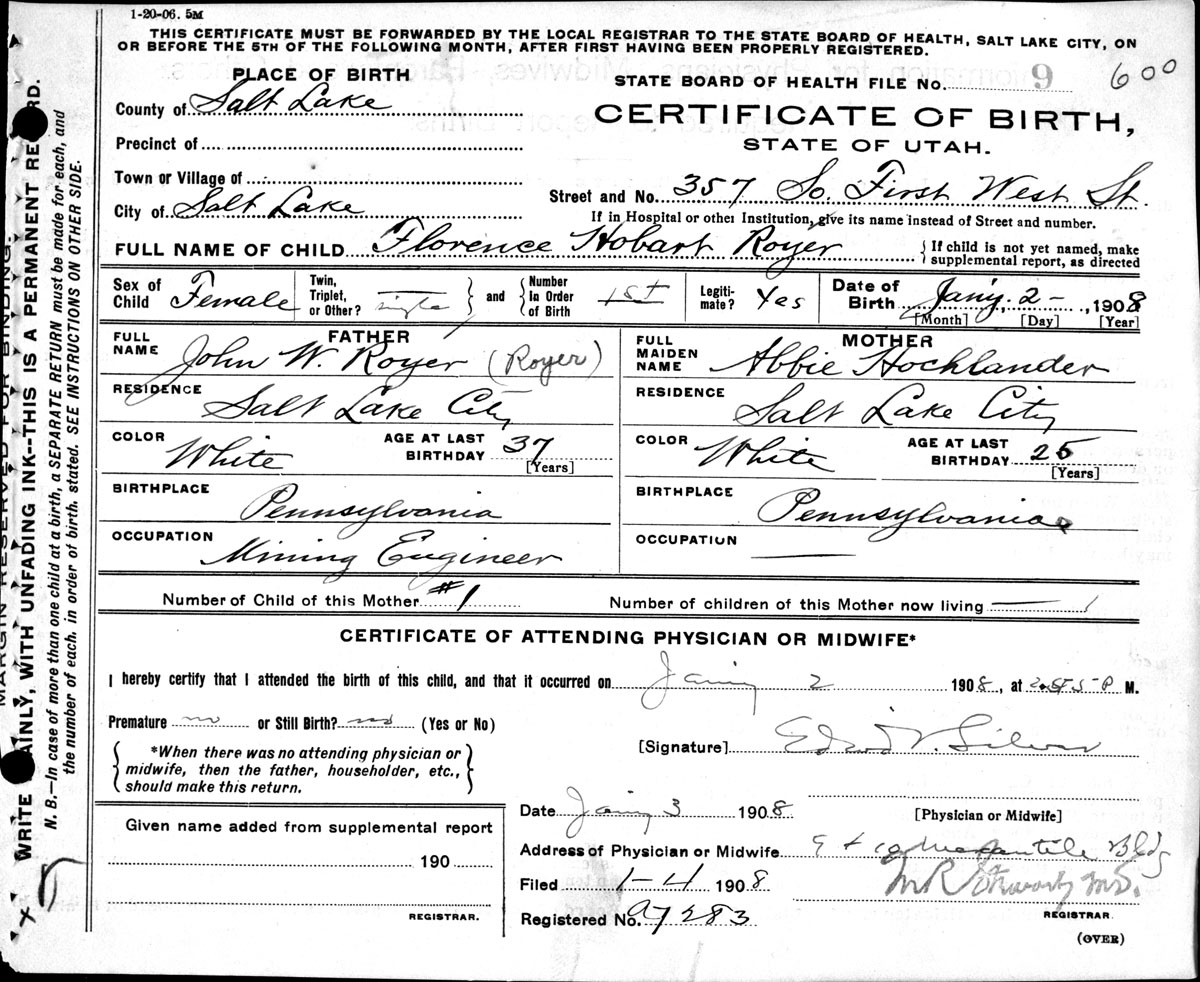 1-20-06. 5M
THIS CERTIFICATE MUST BE FORWARDED BY THE LOCAL REGISTRAR TO THE STATE BOARD OF HEALTH, SALT LAKE CITY, ON
OR BEFORE THE 5TH OF THE FOLLOWING MONTH, AFTER FIRST HAVING BEEN PROPERLY REGISTERED.
PLACE OF BIRTH
STATE BOARD OF HEALTH FILE No. 9 600
County of Salt Lake
CERTIFICATE OF BIRTH,
STATE OF UTAH.
Precinct of
Town or Village of
Street and No. 357 So. First West St.
City of Salt Lake
If in Hospital or other Institution, give its name instead of Street and number.
FULL NAME OF CHILD Florence Hobart Royer
{ If child is not yet named, make
supplemental report, as directed
Sex of Child Female
Twin, Triplet, or Other? single
and
Number in Order of Birth 1st
Legiti- mate? Yes
Date of Birth Jany. 2 - , 1908
[Month] [Day] [Year]
FATHER
FULL NAME John W. Royer (Royer)
RESIDENCE Salt Lake City
COLOR White
AGE AT LAST BIRTHDAY 37
[Years]
BIRTHPLACE Pennsylvania
OCCUPATION Mining Engineer
MOTHER
FULL MAIDEN NAME Abbie Hochlander
RESIDENCE Salt Lake City
COLOR White
AGE AT LAST BIRTHDAY 25
[Years]
BIRTHPLACE Pennsylvania
OCCUPATION —
Number of Child of this Mother #1
Number of children of this Mother now living — 1
CERTIFICATE OF ATTENDING PHYSICIAN OR MIDWIFE*
I hereby certify that I attended the birth of this child, and that it occurred on Jany 2 1908, at M.
Premature no or Still Birth? no (Yes or No)
*When there was no attending physician or
midwife, then the father, householder, etc.,
should make this return.
[Signature]
Date Jany 3 1908
[Physician or Midwife]
Address of Physician or Midwife Mercantile Bldg
Filed 1-4 1908
Registered No. 283
REGISTRAR.
(OVER)
Given name added from supplemental report
190
REGISTRAR.
MARGIN RESERVED FOR BINDING.
WRITE AINLY, WITH UNFADING INK--THIS IS A PERMANENT RE RD.
N. B.—In case of more than one child at a birth, a SEPARATE RETURN must be made for each, and
the number of each, in order of birth, stated. SEE INSTRUCTIONS ON OTHER SIDE.